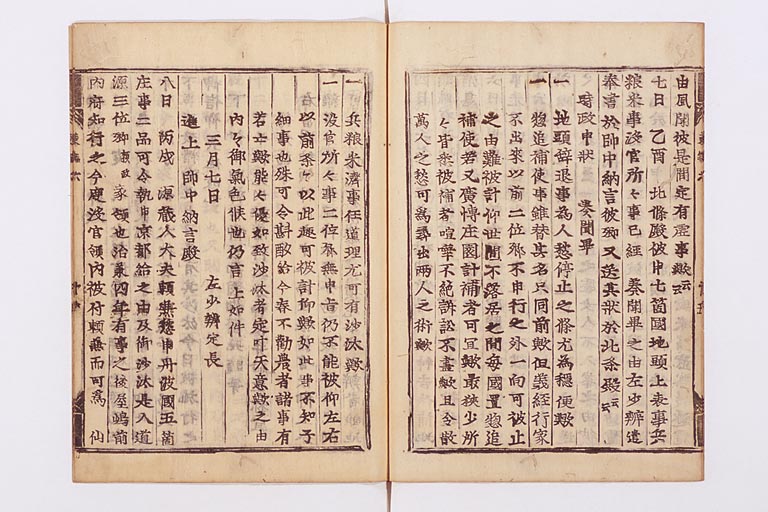 由風聞被是間定有虚事歟云云
七日 乙酉 北條殿被申七箇國地頭上表事兵
粮米事没官所々事已經 奏聞畢之由左少辨進
奉書於帥中納言彼卿又送其狀於北條殿云云
時政申狀 奏聞畢
一 地頭辞退事為人愁停止之條尤為穏便歟
一 惣追補使事雖替其名只同前歟但義經行家
不出来以前二位卿不申行之外一向可被止
之由難被計仰世間不落居之間毎國置惣追
補使若又廣博庄園計補者可宜歟最狭少所
々皆悉被補者喧嘩不絶訴訟不盡歟且令散
萬人之愁可為善出兩人之術歟
一 兵粮米濟事任道理尤可有沙汰歟
一 没官所々事二位卿無申旨仍不能被仰左右
右以前条々以此趣可被計仰歟如此事不知子
細事也殊可令斟酌給今春不勧農者諸事有
若亡歟能々優如致沙汰者定叶天意歟之由
内々御氣色候也仍言上如件
三月七日 左少辨定長
進上 帥中納言殿
八日 丙戌 源蔵人大夫頼兼愁申丹波國五箇
庄事二品可令執申京都給之由及御沙汰是入道
源三位卿 家領也治承四年有事之後屋嶋前
内府知行之今度没官領内被付頼兼而可為 仙